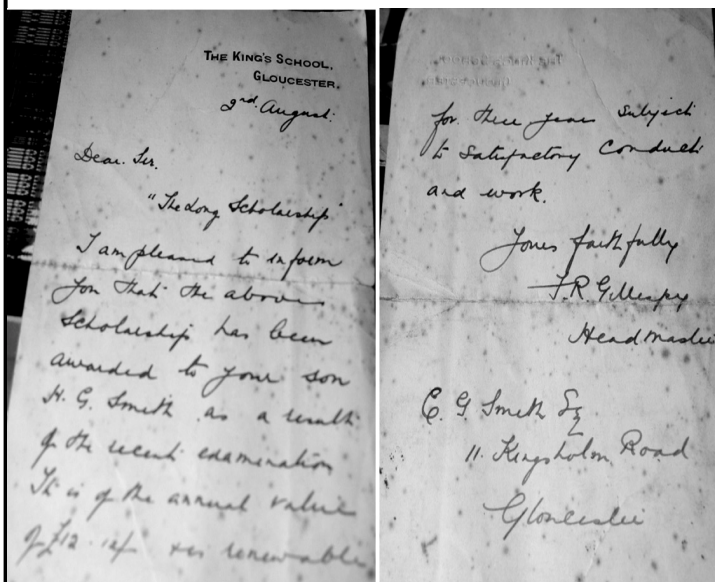 THE KING'S SCHOOL,
GLOUCESTER.
2nd. August.
Dear. Sir.
"The Long Scholarship"
I am pleased to inform
you that the above
Scholarship has been
awarded to your son
H. G. Smith as a result
of the recent examination
It is of the annual value
of £12 & is renewable
for three years subject
to satisfactory conduct
and work.
Yours faithfully
Headmaster
E. G Smith Esq
11. Kingsholm Road
Gloucester